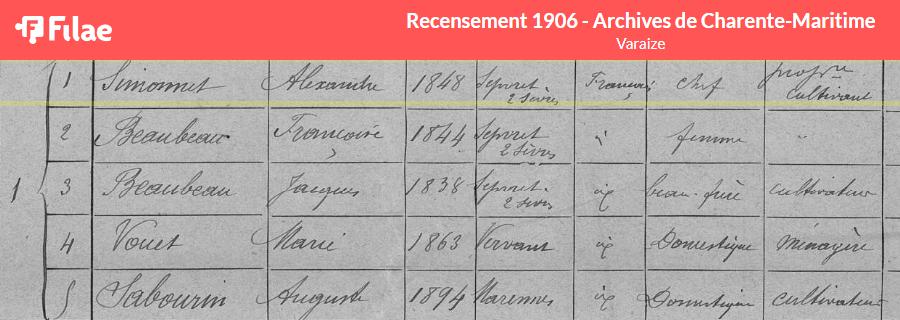 Filae
Recensement 1906 - Archives de Charente-Maritime
Varaize
1 Simonnet Alexandre 1848 Sepvret 2 Sèvres Français chef propre cultivant
2 Beaubeau Françoise 1844 Sepvret 2 Sèvres " femme "
1 3 Beaubeau Jacques 1838 Sepvret 2 Sèvres beau-frère cultivateur
4 Vouet Marie 1863 Vervant Domestique Ménagère
5 Sabourin Auguste 1894 Marennes Domestique cultivateur